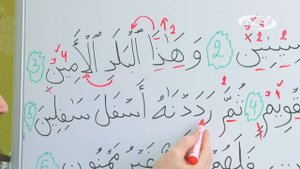 سِينِينَ 2 وَهَٰذَا الْبَلَدِ الْأَمِينِ 3
تَقْوِيمٍ 4 ثُمَّ رَدَدْنَٰهُ أَسْفَلَ سَٰفِلِينَ 5
فَلَهُمْ غَيْرُ مَمْنُونٍ 6